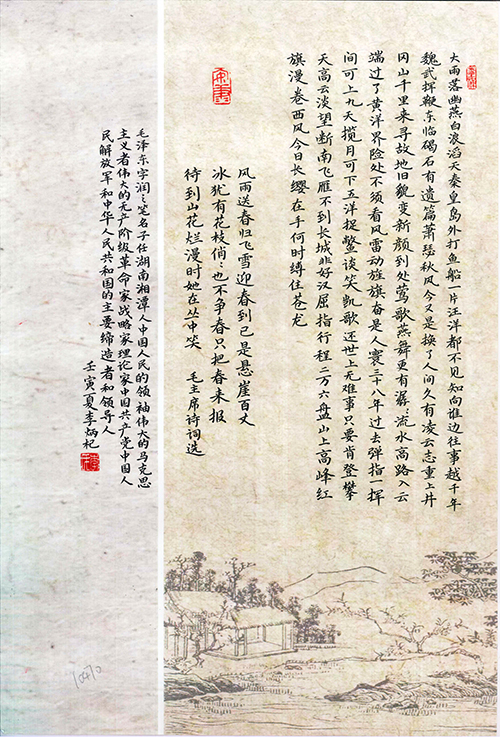 大雨落幽燕白浪滔天秦皇岛外打鱼船一片汪洋都不见知向谁边往事越千年
魏武挥鞭东临碣石有遗篇萧瑟秋风今又是换了人间久有凌云志重上井
冈山千里来寻故地旧貌变新颜到处莺歌燕舞更有潺〻流水高路入云
端过了黄洋界险处不须看风雷动旌旗奋是人寰三十八年过去弹指一挥
间可上九天揽月可下五洋捉鳖谈笑凯歌还世上无难事只要肯登攀
天高云淡望断南飞雁不到长城非好汉屈指行程二万六盘山上高峰红
旗漫卷西风今日长缨在手何时缚住苍龙
风雨送春归飞雪迎春到已是悬崖百丈
冰犹有花枝俏〻也不争春只把春来报
待到山花烂漫时她在丛中笑 毛主席诗词选
毛泽东字润〻笔名子任湖南湘潭人中国人民的领袖伟大的马克思
主义者伟大的无产阶级革命家战略家理论家中国共产党中国人
民解放军和中华人民共和国的主要缔造者和领导人
壬寅夏李炳杞